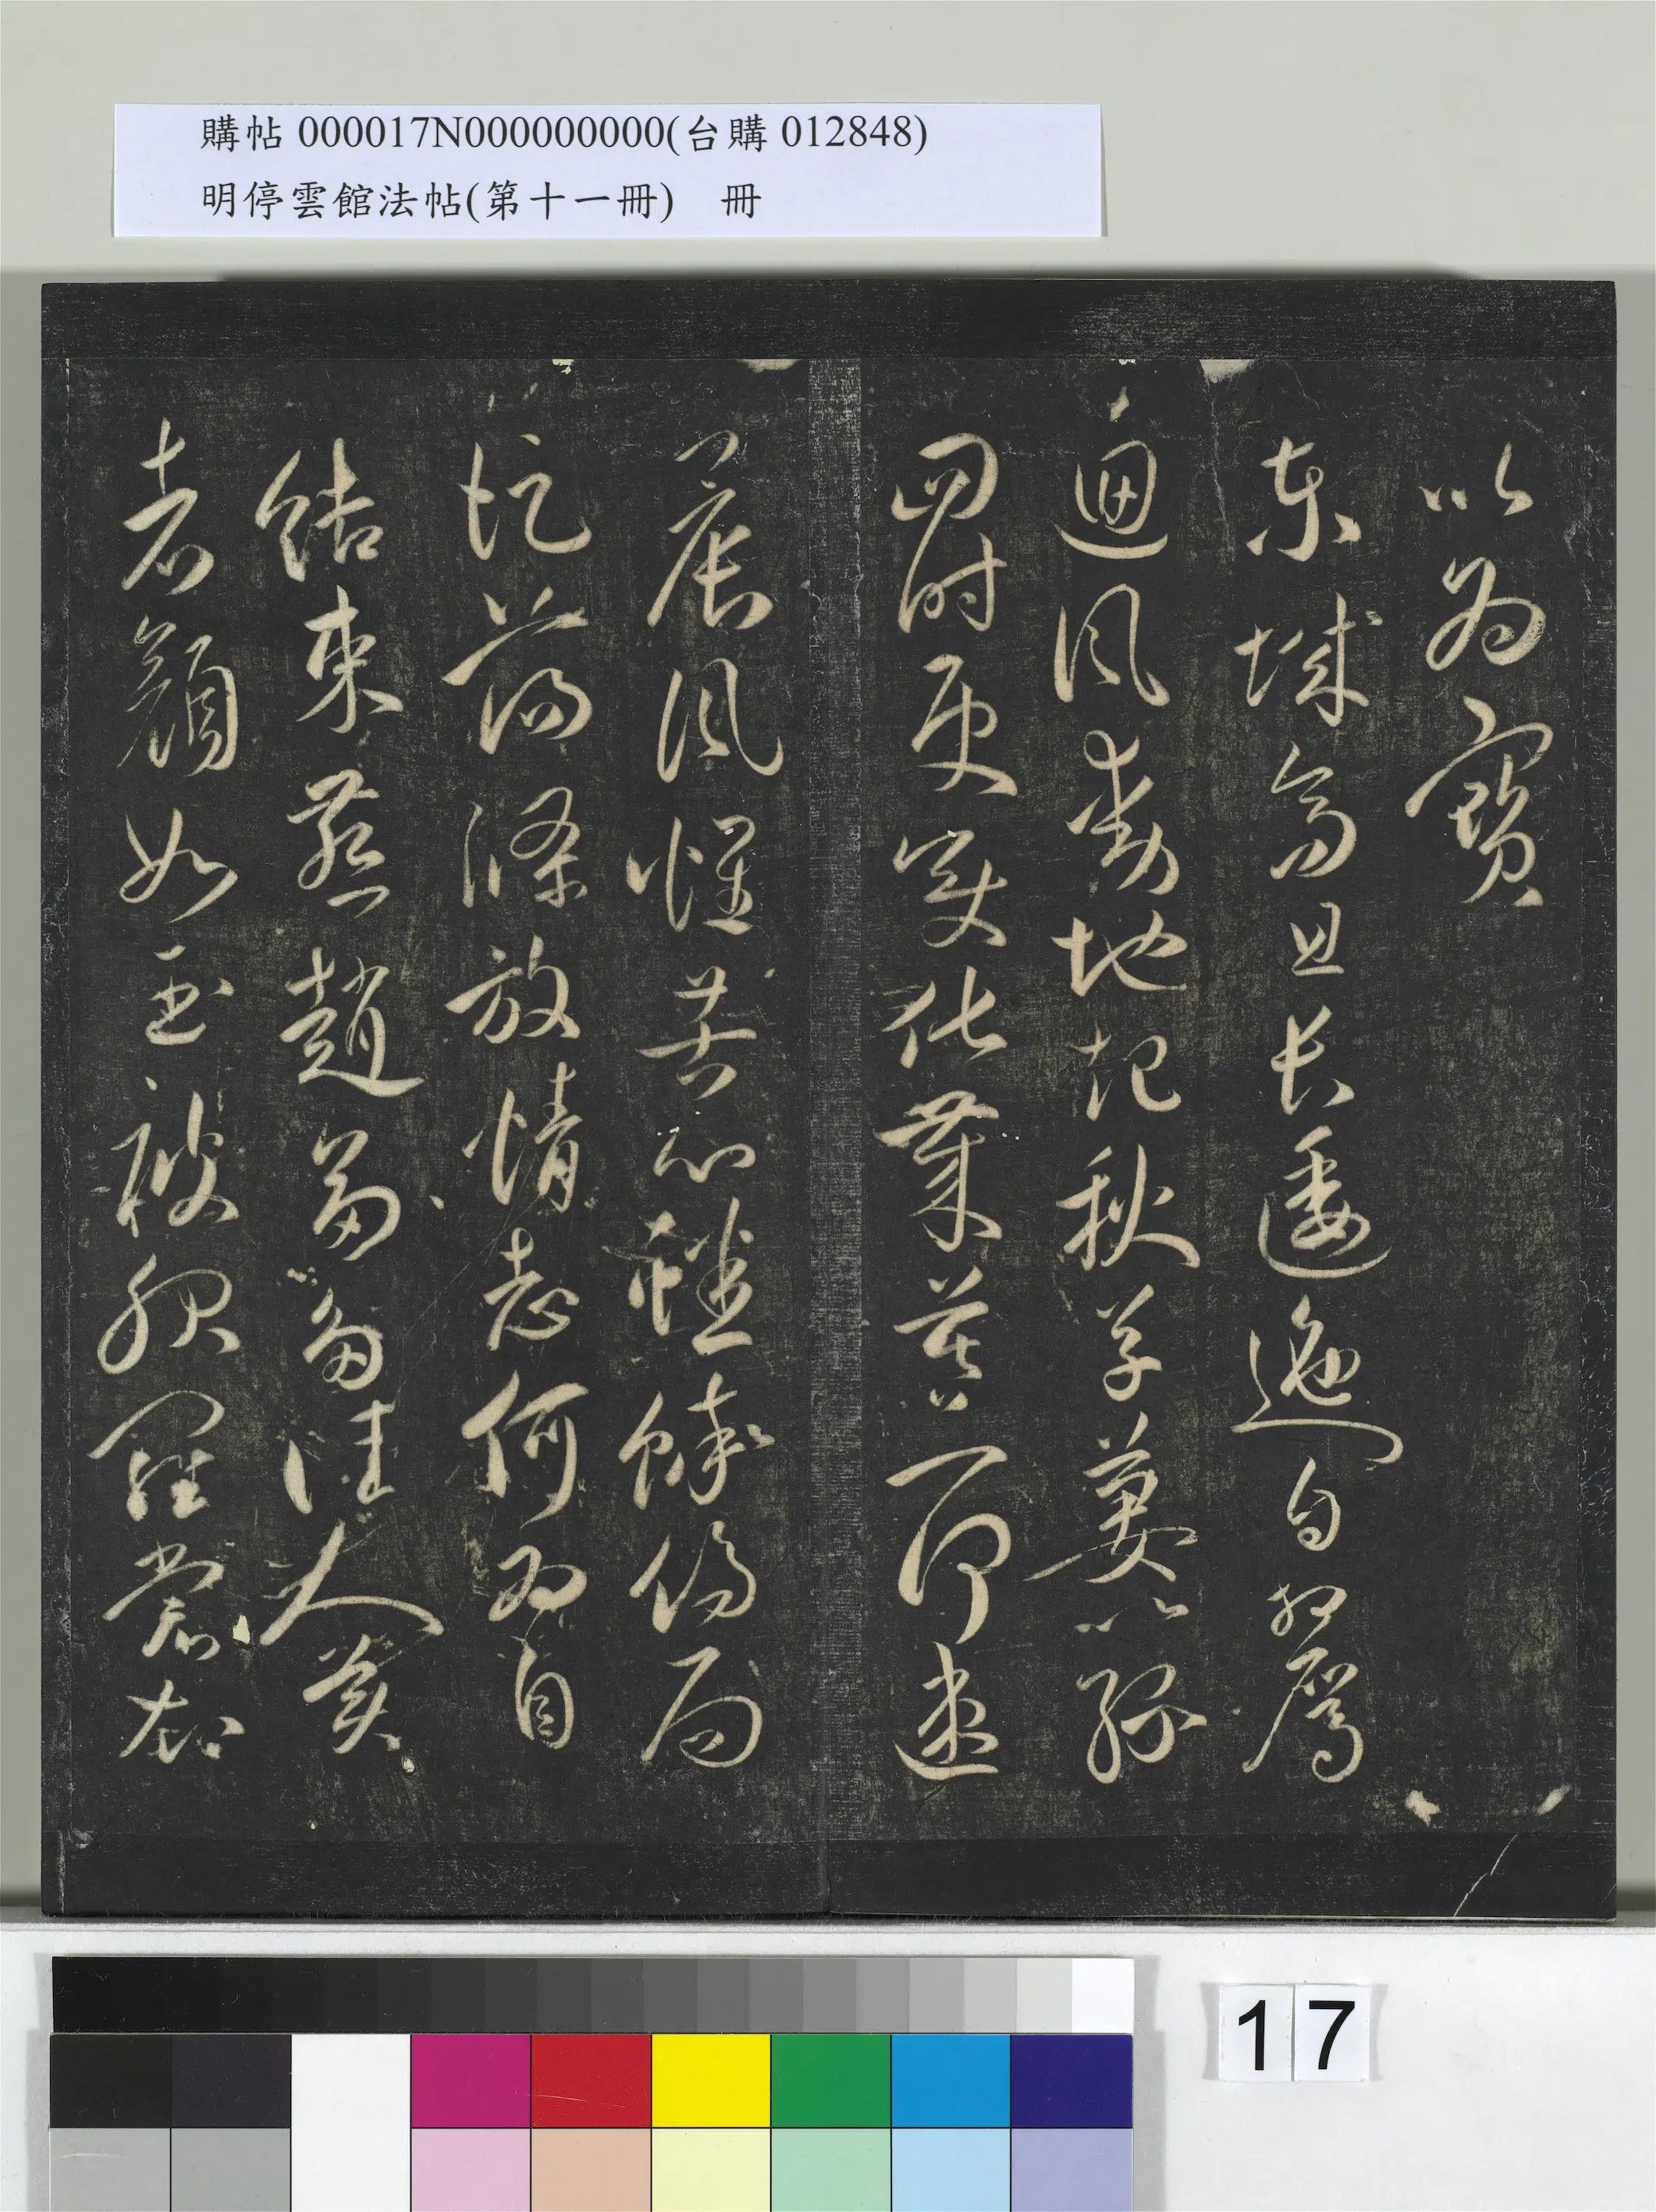 購帖 000017N000000000(台購 012848)
明停雲館法帖(第十一冊) 冊
以為寶
東城高且長逶迤自相屬
迴風動地起秋草萋以綠
四時更變化歲暮一何速
晨風懷苦心蟋蟀傷局
促蕩滌放情志何為自
結束燕趙多佳人美
者顏如玉被服羅裳衣
17